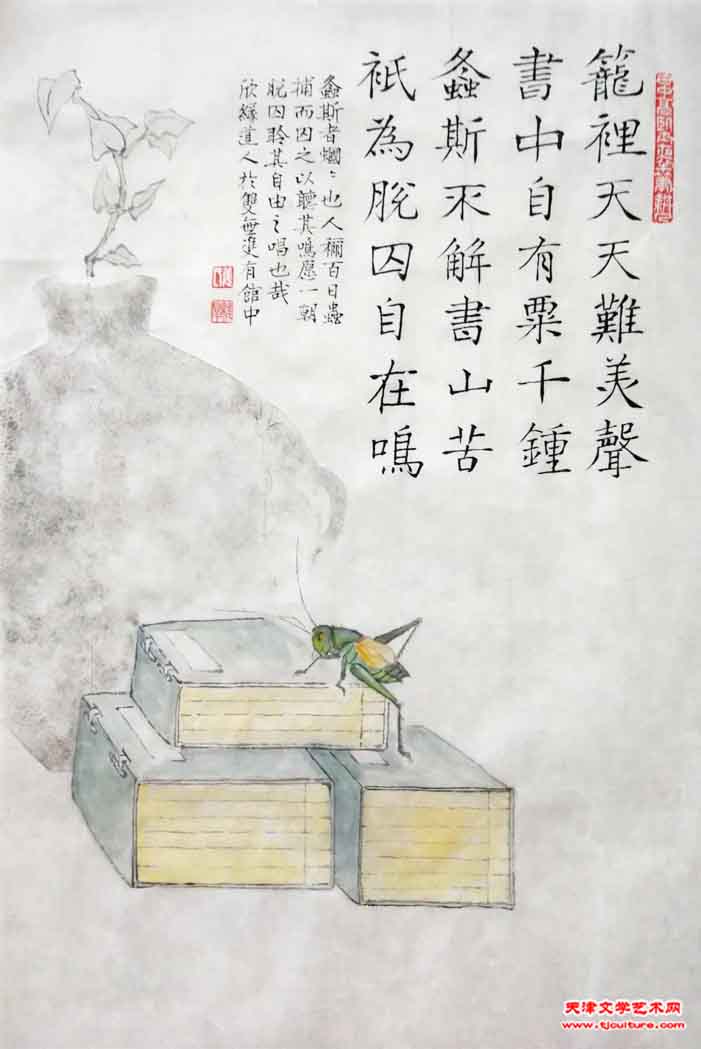 籠裡天天難美聲
書中自有粟千鍾
螽斯不解書山苦
祇為脫囚自在鳴
螽斯者蟈〻也人稱百日蟲
捕而囚之以聽其鳴愿一朝
脫囚聆其自由之唱也哉
欣緣道人於雙無雙有館中
天津文学艺术网
www.tjculture.com